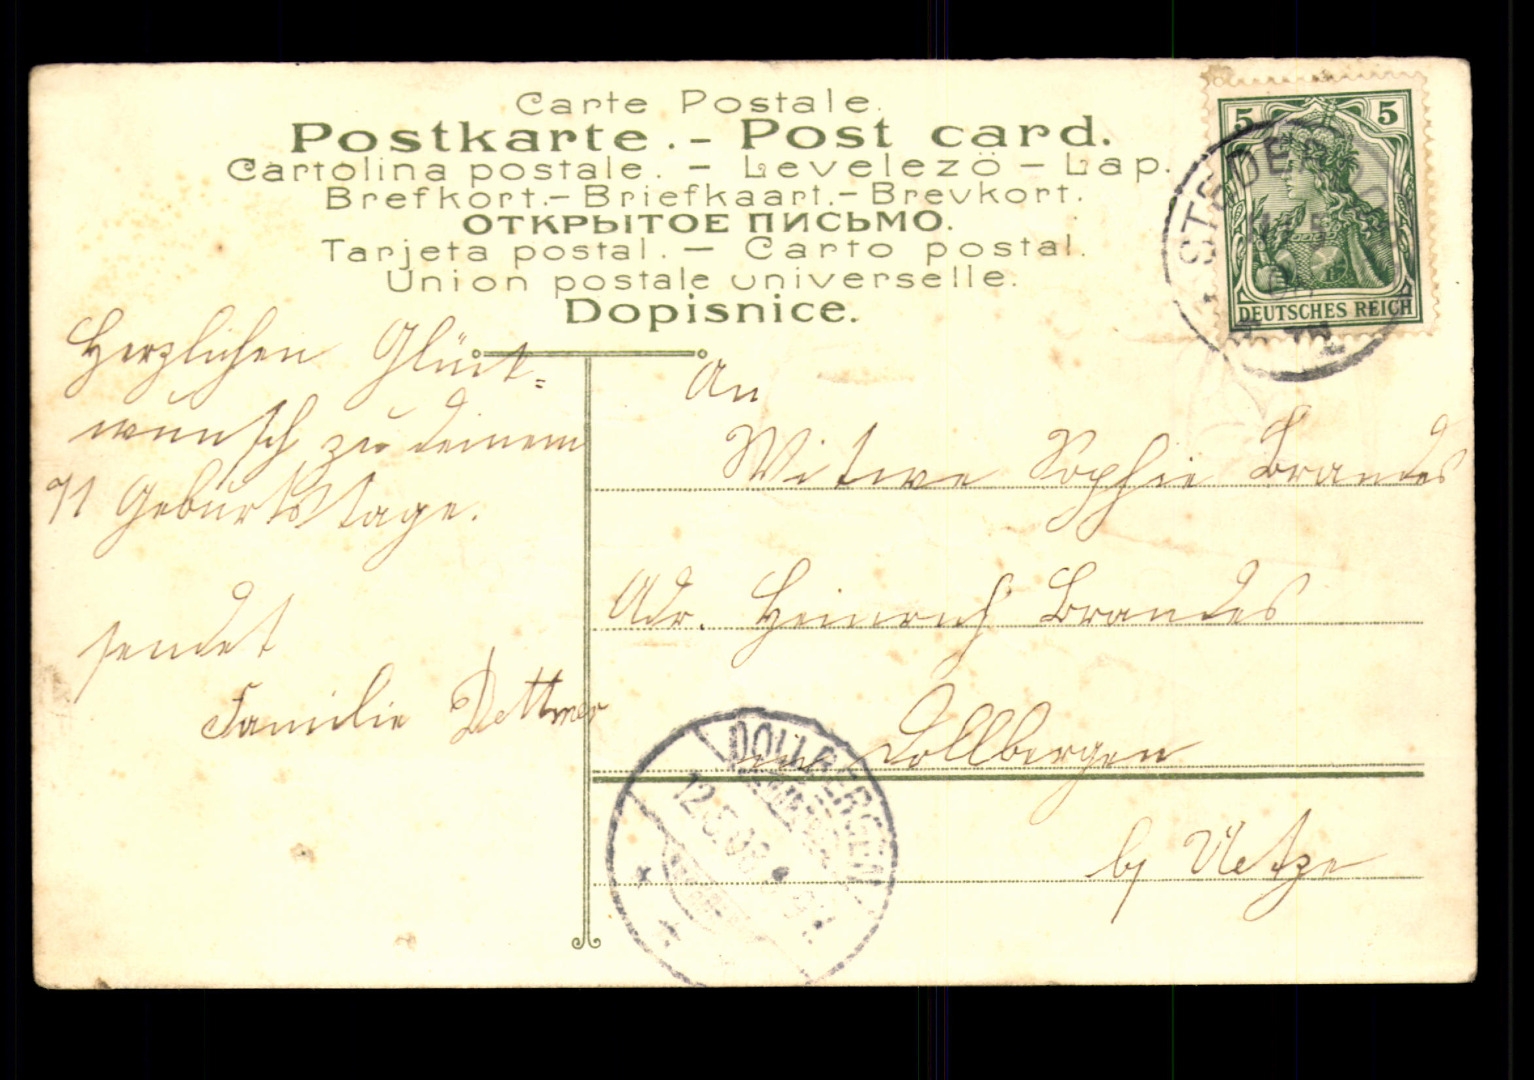 Carte Postale.
Postkarte. - Post card.
Cartolina postale. - Levelezö - Lap.
Brefkort. - Briefkaart. - Brevkort.
ОТКРЫТОЕ ПИСЬМО.
Tarjeta postal. - Carto postal.
Union postale universelle.
Dopisnice.
5 5
DEUTSCHES REICH
Herzlichen Glück-
wunsch zu deinem
71 Geburtstage.
sendet
Familie Dettmer
An
Witwe Sophie Brandes
Adr. Heinrich Brandes
in Dollbergen
by Uetze
DOLLBERGEN
12.5.08